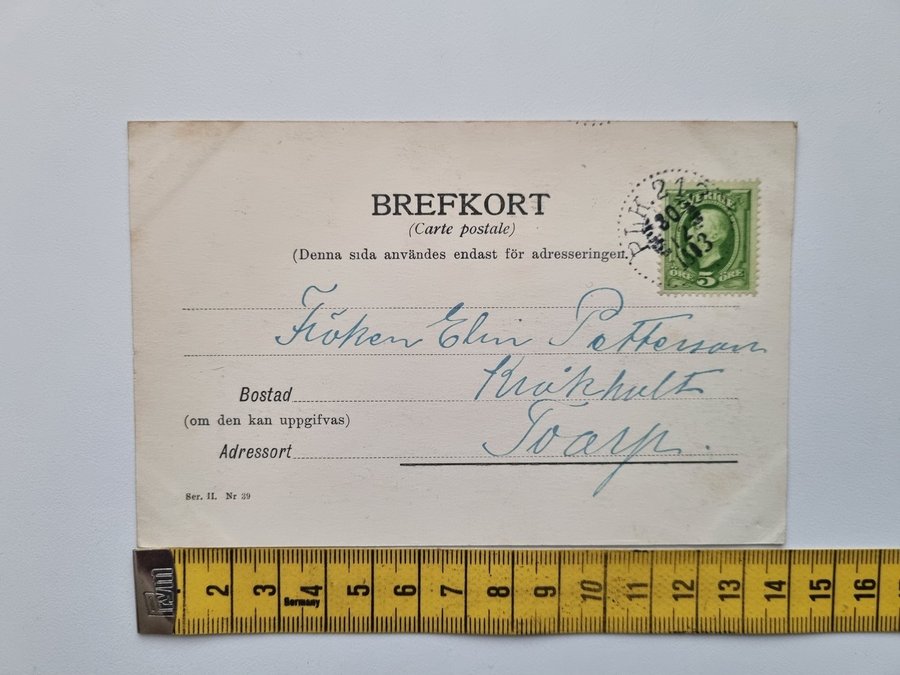 BREFKORT
(Carte postale)
(Denna sida användes endast för adresseringen.)
PLK 212
30
12
1903
SVERIGE
ÖRE 5 ÖRE
Fröken Elin Petterson
Krökhult
Bostad
(om den kan uppgifvas)
Toarp.
Adressort
Ser. II. Nr 39
2 3 4 5 6 7 8 9 10 11 12 13 14 15 16
Germany